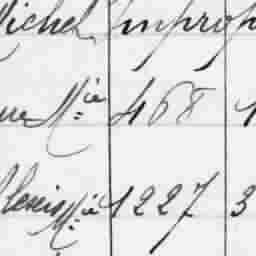 Michel Improp
Mie 468 1
Alexis Mie 1227 3